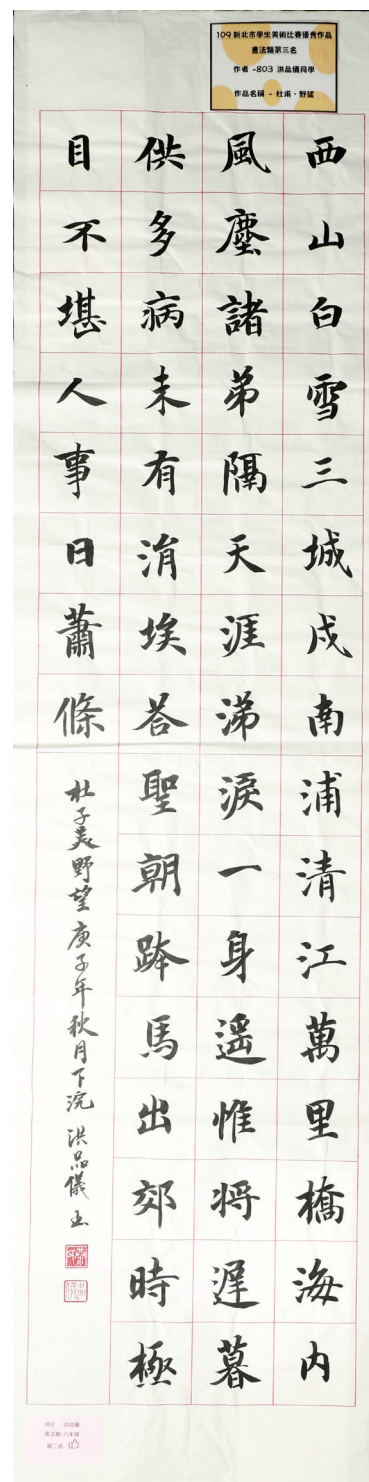 109新北市學生美術比賽優秀作品
書法類第三名
作者 -803 洪品儀同學
作品名稱 - 杜甫・野望
西山白雪三城戍南浦清江萬里橋海内
風塵諸弟隔天涯涕淚一身遥惟将遲暮
供多病未有涓埃荅聖朝跨馬出郊時極
目不堪人事日蕭條
杜子美野望庚子年秋月下浣 洪品儀 書
803 洪品儀
書法類-八年級
第二名